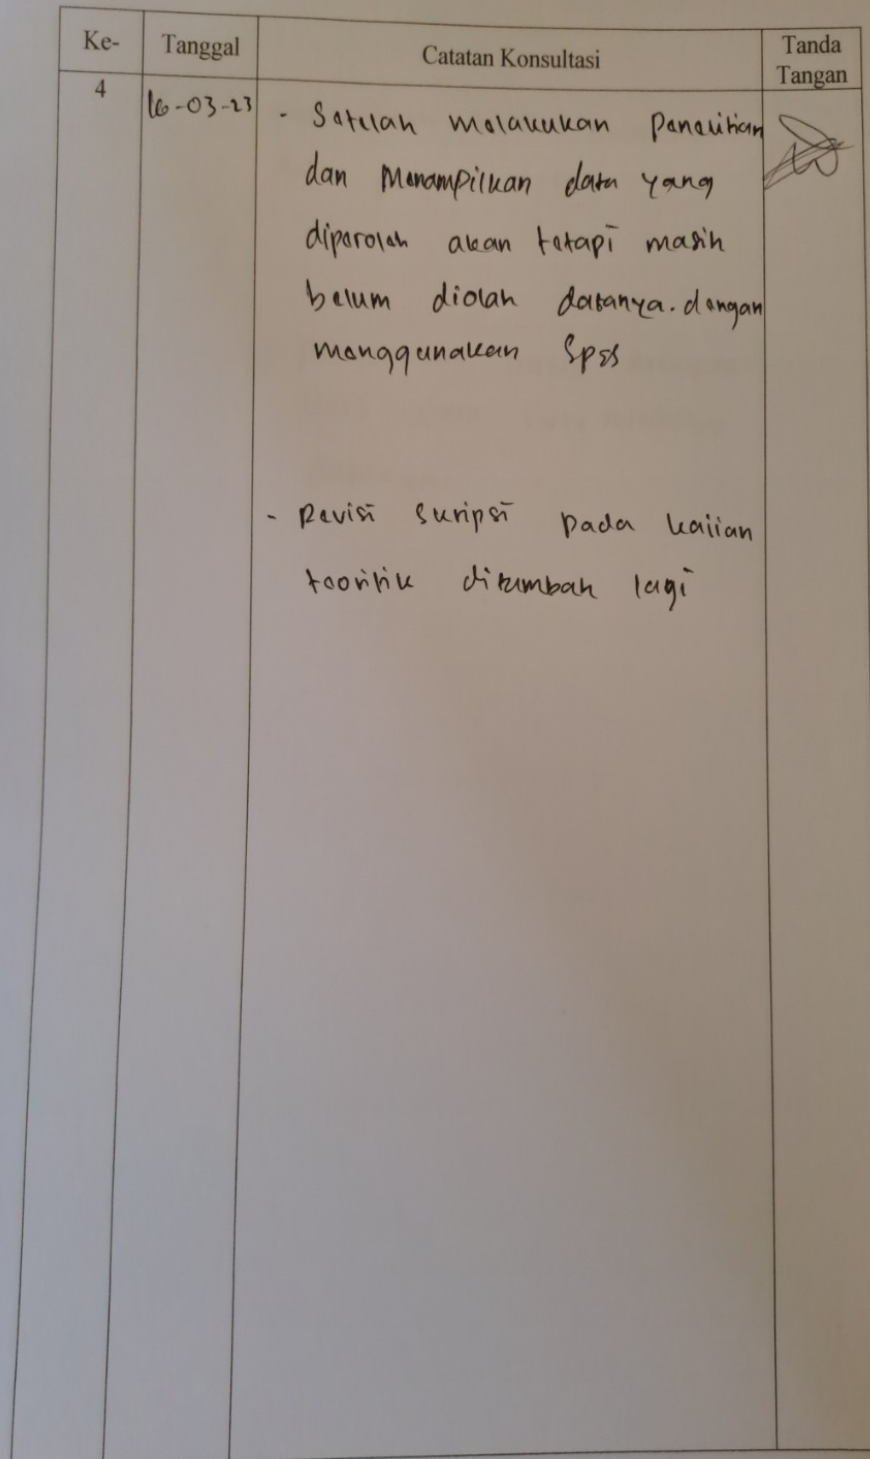 Ke-
Tanggal
Catatan Konsultasi
Tanda
Tangan
4
16-03-23
- Setelah melakukan penelitian
dan menampilkan data yang
diperoleh akan tetapi masih
belum diolah datanya. dengan
menggunakan Spss
- Revisi skripsi pada kajian
teoritik ditambah lagi